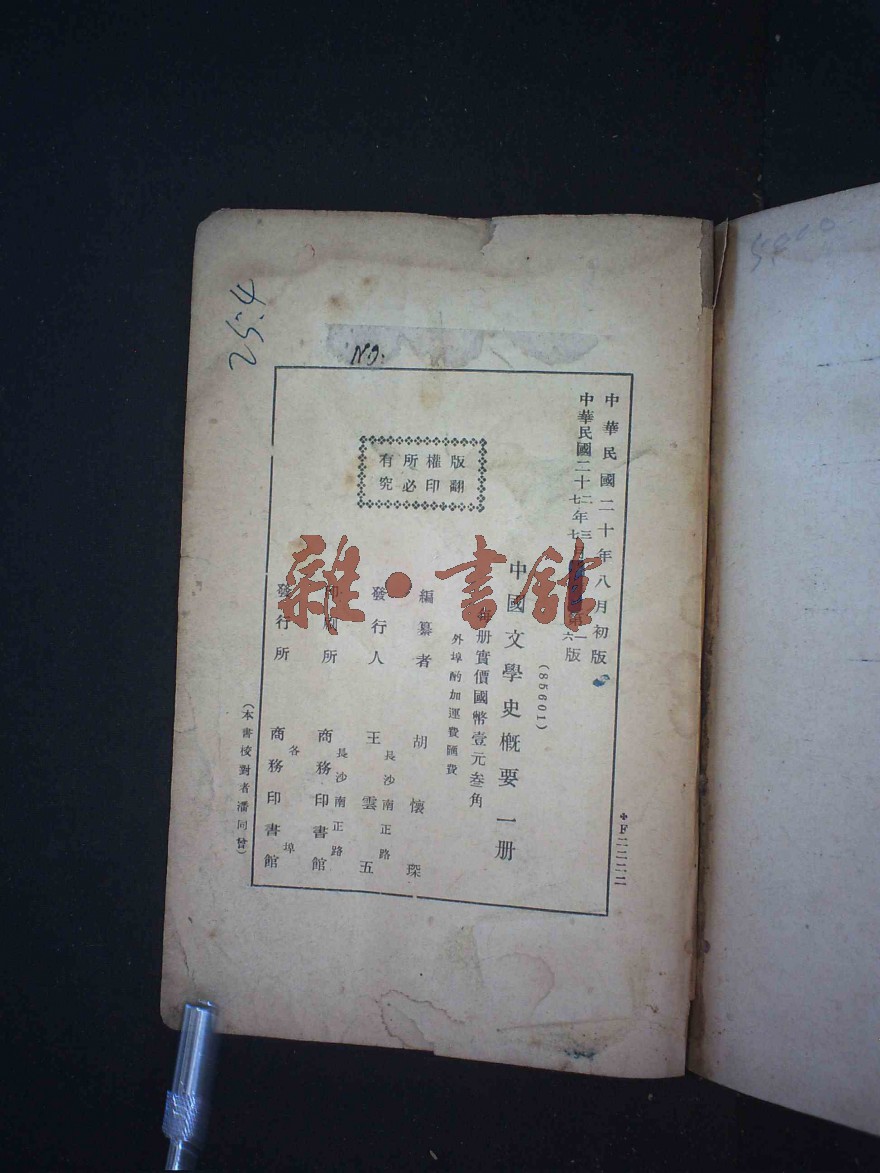 5000
25.4
No.
❖F二二二二
中華民國二十年八月初版
中華民國二十二七年三七月第一六版
(85601)
中國文學史概要 一册
每册實價國幣壹元叁角
外埠酌加運費匯費
版權所有
翻印必究
編纂者 胡懷琛
發行人 長沙南正路 王雲五
印刷所 長沙南正路 商務印書館
發行所 各埠 商務印書館
(本書校對者潘同曾)
雜·書館